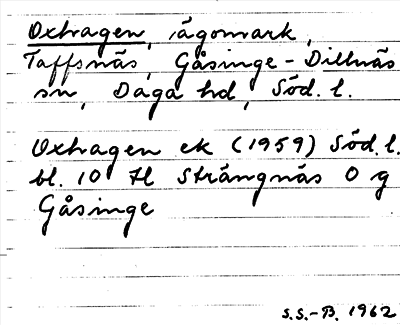 Oxhagen, ägomark,
Taffsnäs, Gåsinge-Dillnäs
sn, Daga hd, Söd. l.
Oxhagen ek (1959) Söd. l.
bl. 10 Fl Strängnäs O g
Gåsinge
S.S.-B. 1962